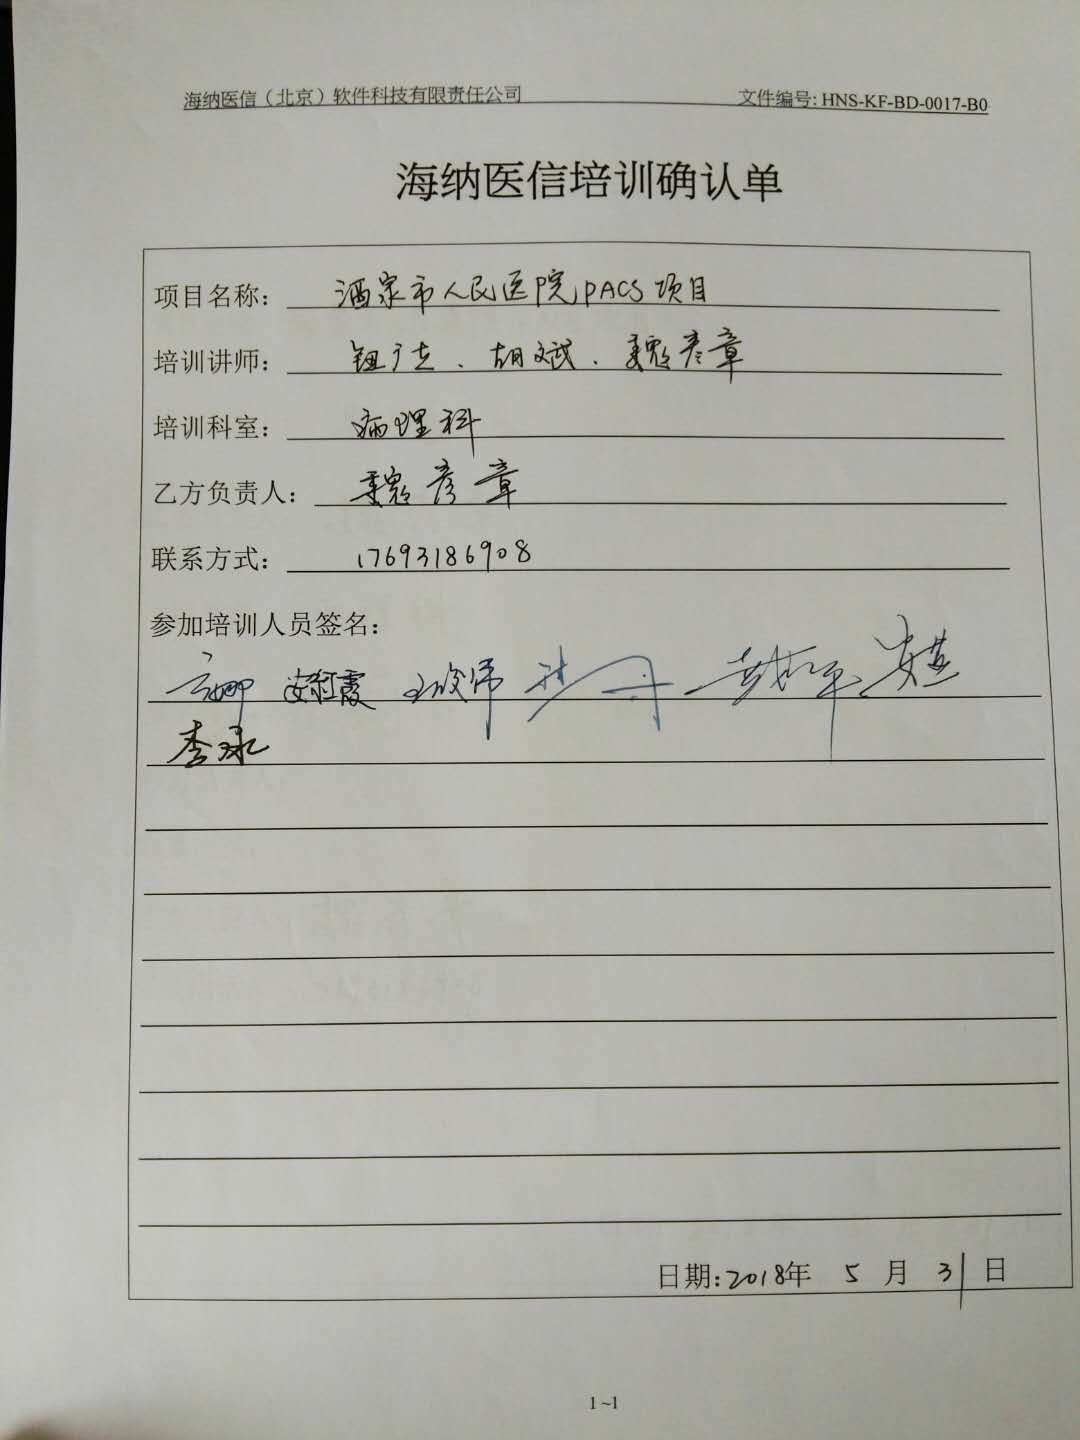 海纳医信（北京）软件科技有限责任公司 文件编号: HNS-KF-BD-0017-B0
海纳医信培训确认单
项目名称: 酒泉市人民医院PACS项目
培训讲师: 钮广志、胡斌、魏彦章
培训科室: 病理科
乙方负责人: 魏彦章
联系方式: 17693186908
参加培训人员签名:
安红霞
李冰
日期:2018年 5 月 31 日
1~1